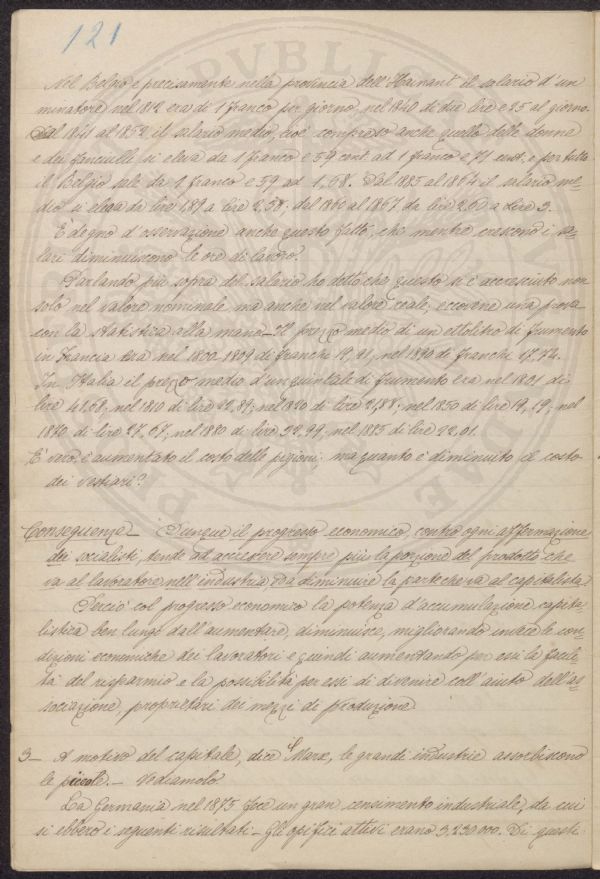 121
Nel Belgio e precisamente nella provincia dell'Hainaut il salario d'un
minatore nel 1812 era di 1 franco per giorno, nel 1840 di due lire e 25 al giorno.
Dal 1841 al 1852 il salario medio, cioè compreso anche quello delle donne
e dei fanciulle si eleva da 1 franco e 59 cent. ad 1 franco e 71 cent. e per tutto
il Belgio sale da 1 franco e 59 ad 1,68. Dal 1885 al 1864 il salario me-
dio si eleva da lire 1,89 a lire 2,58; dal 1860 al 1867 da lire 2,60 a Lire 3.
È degno d'osservazione anche questo fatto, che mentre crescono i sa-
lari diminuiscono le ore di lavoro.
Parlando più sopra del salario ho detto che questo si è accresciuto non
solo nel valore nominale, ma anche nel valore reale; eccovene una prova
con la statistica alla mano_ Il prezzo medio di un ettolitro di frumento
in Francia era nel 1800-1809 di franchi 19,91; nel 1890 di franchi 17.74.
In Italia il prezzo medio d'un quintale di frumento era nel 1801 di
lire 41,68; nel 1810 di lire 22,89; nel 1820 di lire 21,88; nel 1850 di lire 19,19; nel
1870 di lire 27,67; nel 1880 di lire 32,99, nel 1885 di lire 22,01.
È vero, è aumentato il costo delle pigioni: ma quanto è diminuito il costo
dei vestiari?
Conseguenza_ Dunque il progresso economico, contro ogni affermazione
dei socialisti, tende ad accrescere sempre più la porzione del prodotto che
va al lavoratore nell'industria, e a diminuire la parte che va al capitalista.
Perciò col progresso economico la potenza d'accumulazione capita-
listica ben lungi dall'aumentare, diminuisce, migliorando invece le con-
dizioni economiche dei lavoratori e quindi aumentando per essi la facili-
tà del risparmio e la possibilità per essi di divenire coll'aiuto dell'as-
sociazione, proprietari dei mezzi di produzione
3_ A motivo del capitale, dice Marx, le grandi industrie assorbiscono
le piccole._ Vediamolo
La Germania nel 1875 fece un gran censimento industriale, da cui
si ebbero i seguenti risultati_ Gli opifici attivi erano 3.230000. Di questi